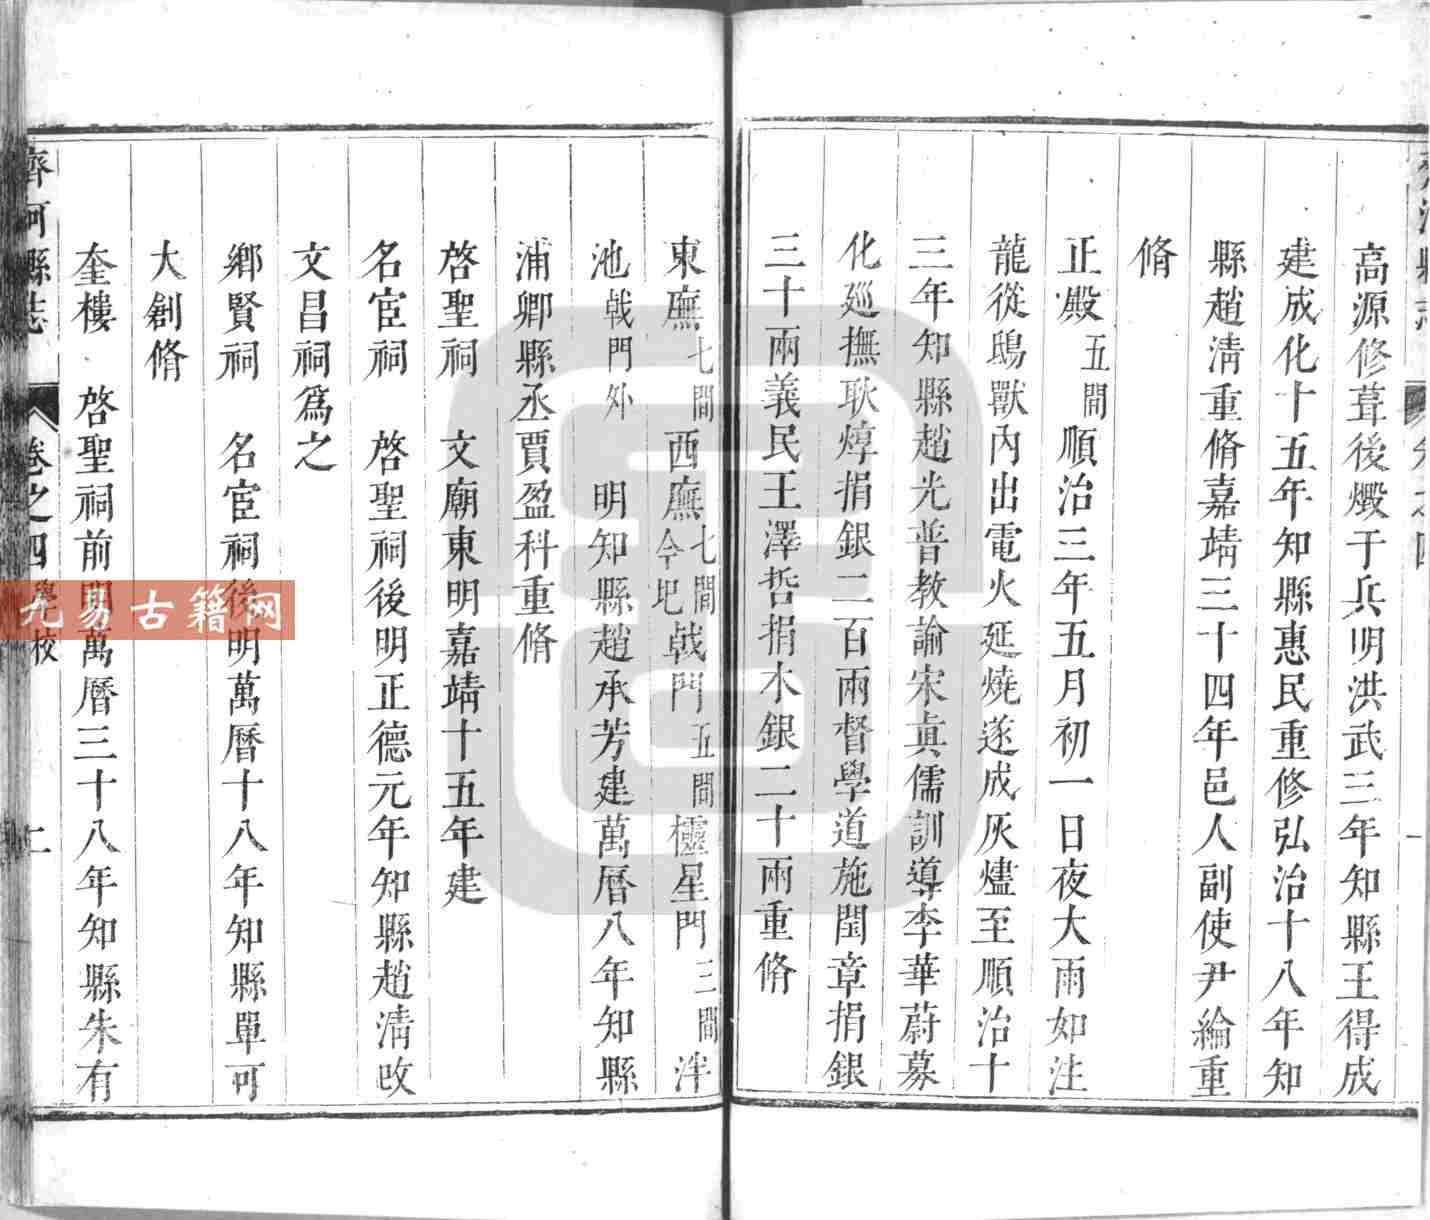 高源修葺後燬于兵明洪武三年知縣王得成
建成化十五年知縣惠民重修弘治十八年知
縣趙清重脩嘉靖三十四年邑人副使尹綸重
脩
正殿五間 順治三年五月初一日夜大雨如注
龍從鴟獸內出電火延燒遂成灰燼至順治十
三年知縣趙光普教諭宋真儒訓導李華蔚募
化廵撫耿焞捐銀二百兩督學道施閏章捐銀
三十兩義民王澤哲捐木銀二十兩重脩
東廡七間西廡七間今圯戟門五間櫺星門三間泮
池戟門外 明知縣趙承芳建萬曆八年知縣
浦卿縣丞賈盈科重脩
啓聖祠 文廟東明嘉靖十五年建
名宦祠 啓聖祠後明正德元年知縣趙清改
文昌祠為之
鄉賢祠 名宦祠後明萬曆十八年知縣單可
大創脩
奎樓 啓聖祠前明萬曆三十八年知縣朱有
齊河縣志 卷之四 學校 二
九易古籍网